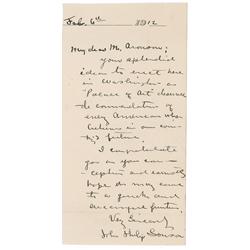 Feb. 6th 1912
My dear Mr. Aronson;
your splendid
idea to erect here
in Washington a
"Palace of Art" deserves
the commendation of
every American who
believes in our coun-
try's future.
I congratulate
you on your con-
ception and earnestly
hope it may come
to a quick and
Very Sincerely
John Philip Sousa